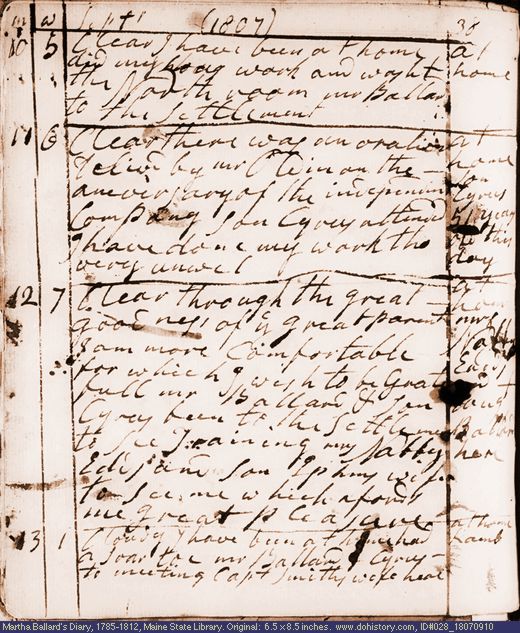 m w Sept (1807) 38
10 5 Clear I have been at home at
did my hous work and washt home
the North room mr Ballard
to the Settlement
11 6 Clear there was an oration at
Delivd by mr on the home
aneversary of the independent Son Cyrus
Company Son Cyrus attend
I have done my work tho this
very unwel day
12 7 Clear through the great at
goodness of ye great parent home
I am more Comfortable mrs
for which I wish to be Grate
full mr Ballard & Son
Cyrus been to the Settlement Ballard
to See Training mrs Pabby here
Edes and Son Ephms wife
to See me which afords
me great pleasure
13 1 Cloudy I have been at home had at home
a Soar toe mr Ballard & Cyrus Lamb
to meeting Capt Smiths wife here
Martha Ballard's Diary, 1785-1812, Maine State Library. Original: 6.5 x 8.5 inches. www.dohistory.com, ID#028_18070910